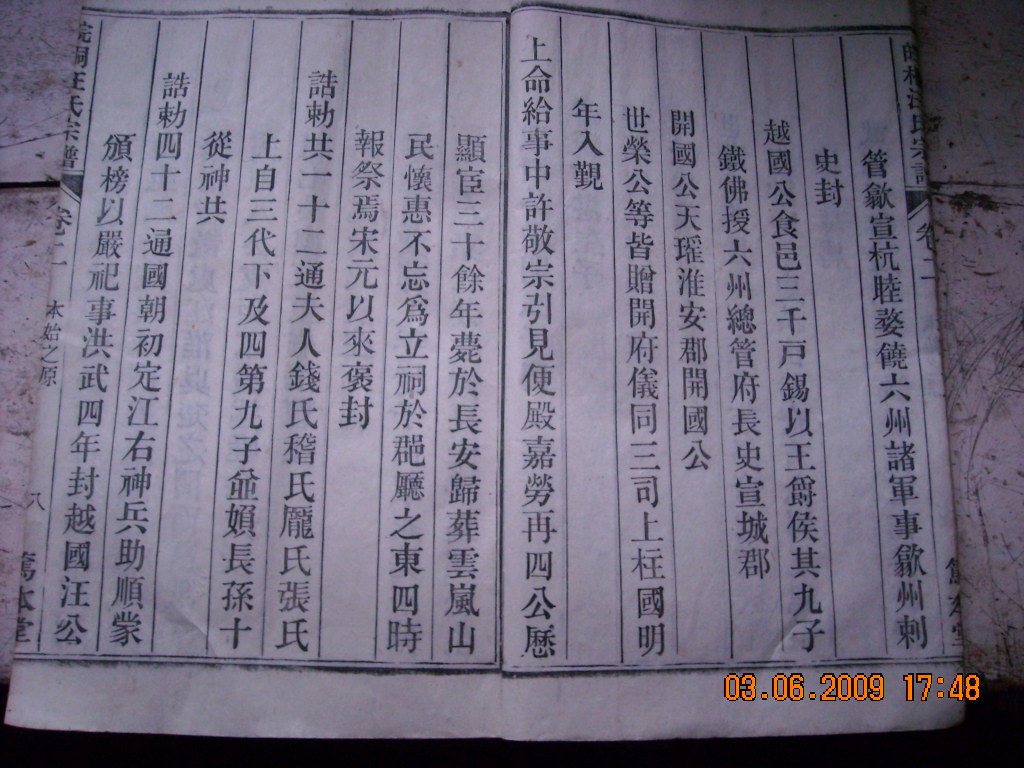 管歙宣杭睦婺饒六州諸軍事歙州刺
史封
越國公食邑三千戸錫以王爵侯其九子
鐵佛授六州總管府長史宣城郡
開國公天瑶淮安郡開國公
世榮公等皆贈開府儀同三司上柱國明
年入覲
上命給事中許敬宗引見便殿嘉勞再四公歷
顯宦三十餘年薨於長安歸葬雲嵐山
民懷惠不忘爲立祠於郡廳之東四時
報祭焉宋元以來褒封
誥勅共一十二通夫人錢氏稽氏龎氏張氏
上自三代下及四第九子並媍長孫十
從神共
誥勅四十二通國朝初定江右神兵助順蒙
頒榜以嚴祀事洪武四年封越國汪公
皖桐汪氏宗譜
卷二
本始之原
八
篤本堂
03.06.2009 17:48